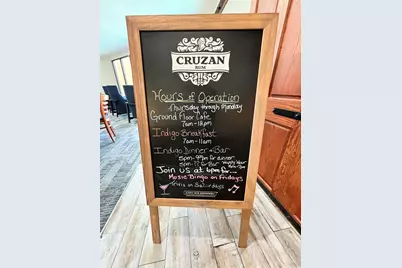 CRUZAN
RUM
Hours of Operation
Thursday through Monday
Ground Floor Cafe
7am-12pm
Indigo Breakfast
7am-11am
Indigo Dinner + Bar
5pm-9pm for dinner
5pm-?? for Bar
Join us at 6pm for...
Music Bingo on Fridays
Trivia on Saturdays